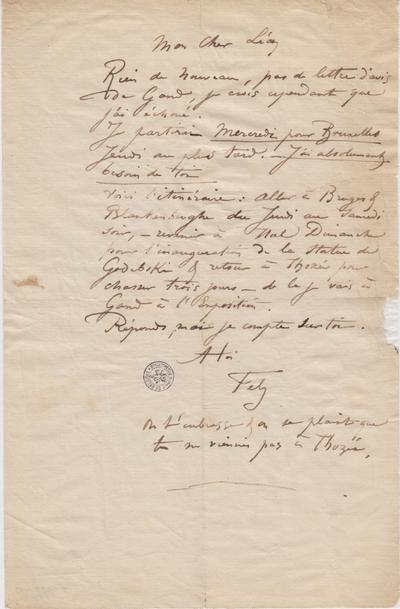 Mon cher Léon
Rien de nouveau, pas de lettre d'avis
de Gand, je crois cependant que
j'ai échoué.
Je partirai Mercredi pour Bruxelles
Jeudi au plus tard. – J'ai absolument
besoin de toi
Voici l'itinéraire : aller à Bruges &
Blankenberghe du Jeudi au Samedi
soir, – revenir à Hal Dimanche
pour l'inauguration de la statue de
Godebski & retour à Thozée pour
chasser trois jours – de là je vais à
Gand à l'Exposition.
Réponds, mais je compte sur toi.
A toi
Fély
On t'embrasse & on se plaint que
tu ne viennes pas à Thozée.